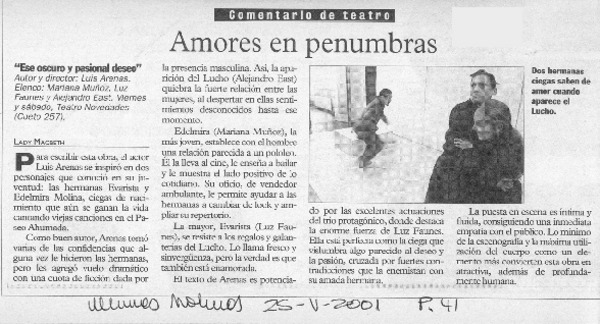 Comentario de teatro
Amores en penumbras
“Ese oscuro y pasional deseo”
Autor y director: Luis Arenas.
Elenco: Mariana Muñoz, Luz
Faunes y Alejandro East. Viernes
y sábado, Teatro Novedades
(Cueto 257).
LADY MACBETH
Para escribir esta obra, el actor
Luis Arenas se inspiró en dos
personajes que conoció en su
juventud: las hermanas Evarista y
Edelmira Molina, ciegas de naci-
miento que aún se ganan la vida
cantando viejas canciones en el Pa-
seo Ahumada.
Como buen autor, Arenas tomó
varias de las confidencias que algu-
na vez le hicieron las hermanas,
pero les agregó vuelo dramático
con una cuota de ficción dada por
la presencia masculina. Así, la apa-
rición del Lucho (Alejandro East)
quiebra la fuerte relación entre las
mujeres, al despertar en ellas senti-
mientos desconocidos hasta ese
momento.
Edelmira (Mariana Muñoz), la
más joven, establece con el hombre
una relación parecida a un pololeo.
Él la lleva al cine, le enseña a bailar
y le muestra el lado positivo de lo
cotidiano. Su oficio, de vendedor
ambulante, le permite ayudar a las
hermanas a cambiar de look y am-
pliar su repertorio.
La mayor, Evarista (Luz Fau-
nes), se resiste a los regalos y galan-
terías del Lucho. Lo llama fresco y
sinvergüenza, pero la verdad es que
también está enamorada.
El texto de Arenas es potencia-
Dos hermanas
ciegas saben de
amor cuando
aparece el
Lucho.
do por las excelentes actuaciones
del trío protagónico, donde destaca
la enorme fuerza de Luz Faunes.
Ella está perfecta como la ciega que
vislumbra algo parecido al deseo y
la pasión, cruzada por fuertes con-
tradicciones que la enemistan con
su amada hermana.
La puesta en escena es íntima y
fluida, consiguiendo una inmediata
empatía con el público. Lo mínimo
de la escenografía y la máxima uti-
lización del cuerpo como un ele-
mento más convierten esta obra en
atractiva, además de profunda-
mente humana.
25-V-2001 P. 41